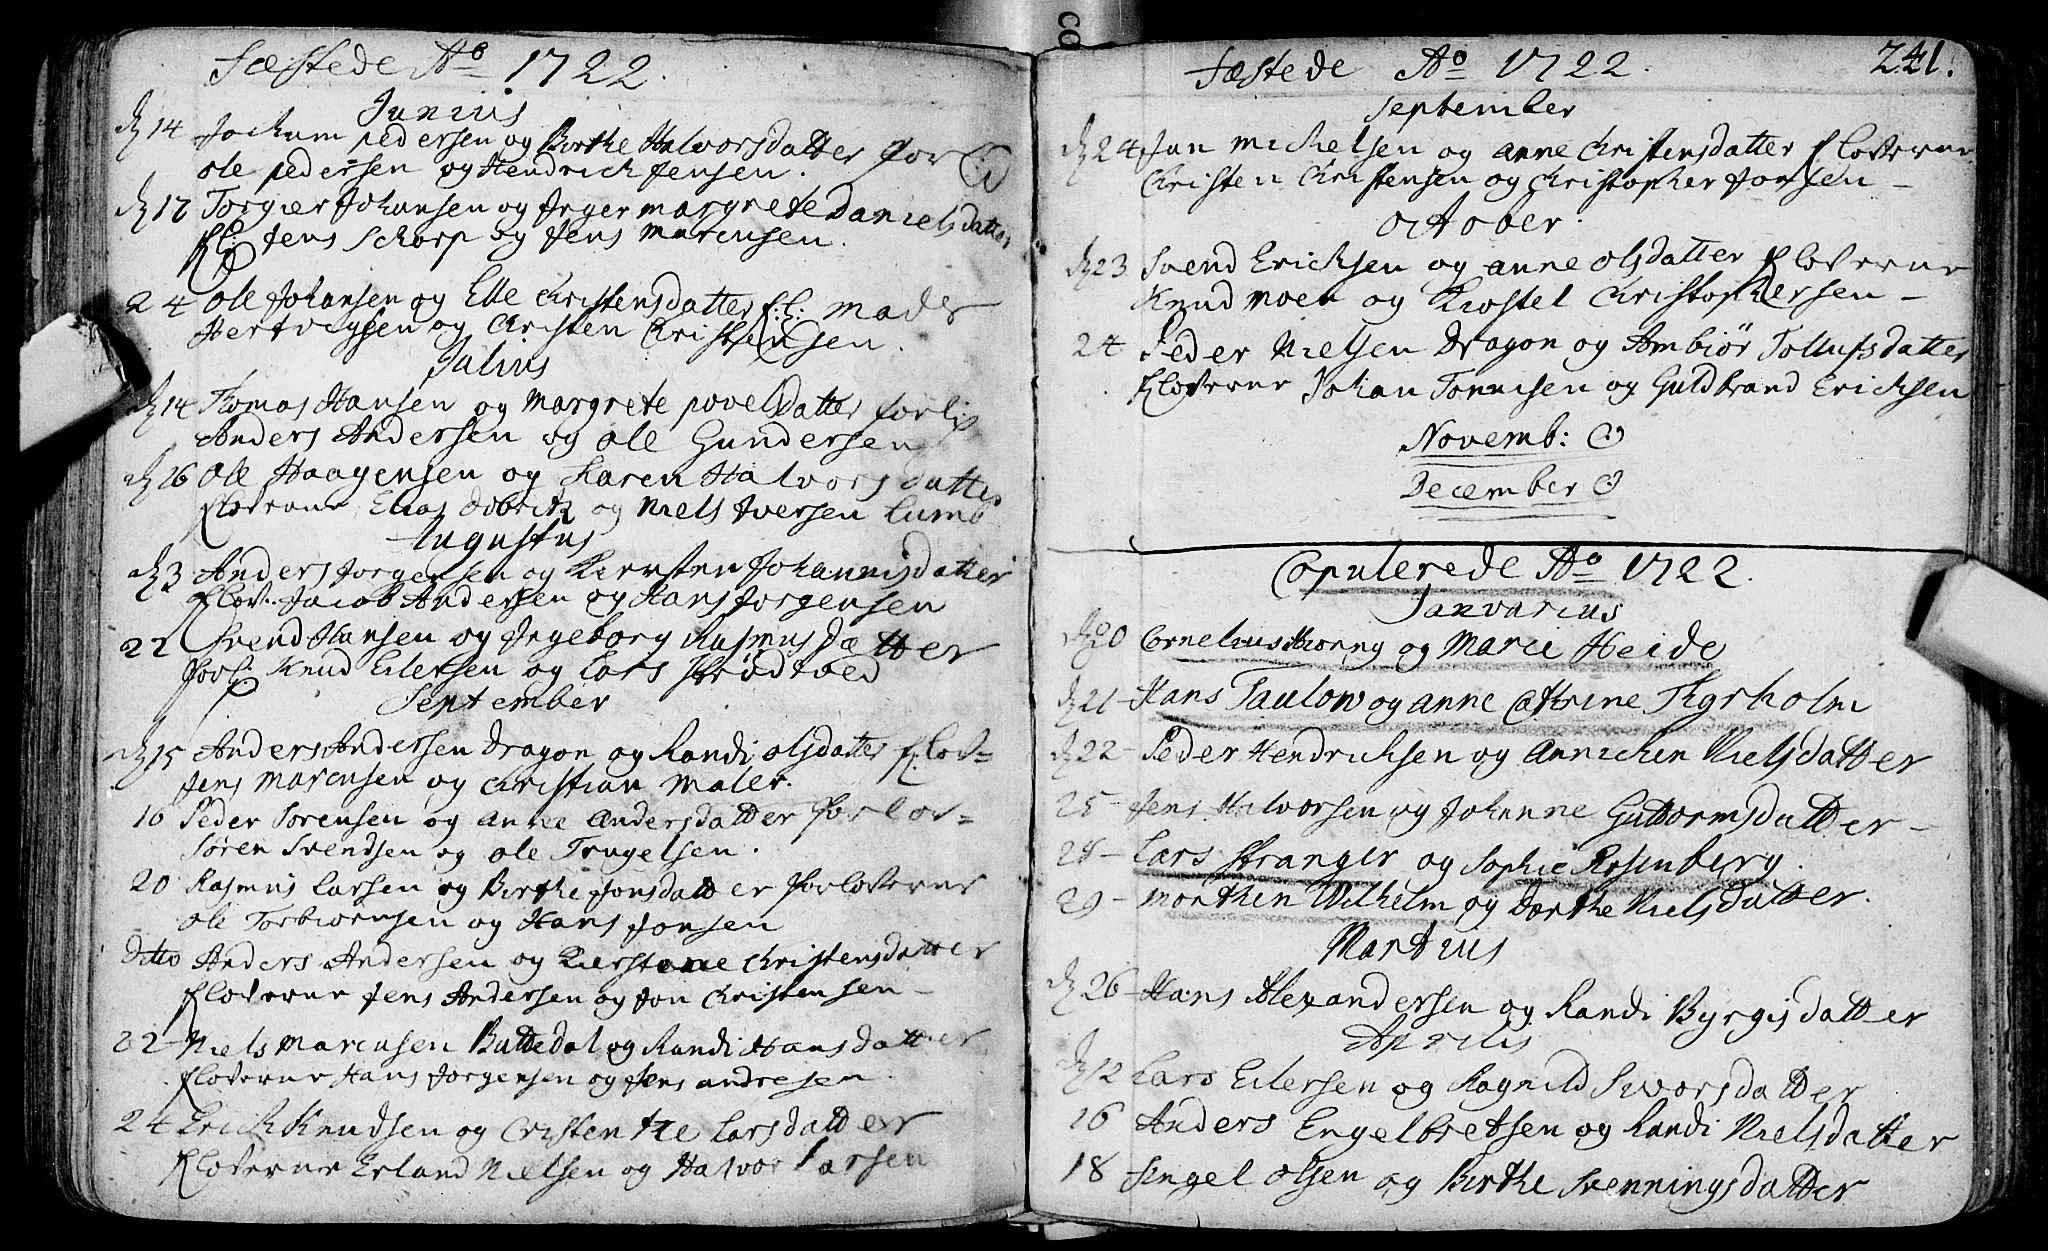 Fæstede Ao 1722.
Junius
d 14 Jochum pedersen og Birthe Halvorsdatter forl:
ole pedersen og Hendrich Jensen.
d 17 Torgier Johansen og Inger margrete Danielsdatter
fl: Jens Schorp og Jens Marcusen.
24 ole Johansen og Elle Christensdatter f:l: mads
Hertvigsen og Christen Christensen.
Julius
d 14 Thomas Hansen og Margrete povelsdatter forl:
Anders Andersen og ole Gundersen
d 26 Ole Haagensen og Karen Halvorsdatter
floverne Elias og Niels Iversen Lumb
Augustus
d 3 Anders Jorgensen og Kiersten Johannisdatter
flov. Jacob Andersen og Hans Jorgensen
22 Svend Hansen og Ingeborg Rasmusdatter
forl: Knud Eilersen og Lars Brødtved
September
d 15 Anders Andersen Dragon og Randi olsdatter flov=
Jens Marcusen og Christian Maler.
16 Peder Sorensen og Anne Andersdatter forlov=
Søren Svendsen og ole Trugelsen.
20 Rasmus Larsen og Birthe Jonsdatter forloverne
ole Torbiornsen og Hans Jonsen
ditto Anders Andersen og Kierstene Christensdatter
floverne Jens Andersen og Jon Christensen -
22 - Niels Marcusen Buttedal og Randi Hansdatter
floverne Hans Jorgensen og Jens andresen.
24 Erich Knudsen og Cristenthe Larsdatter
floverne Erland Nielsen og Halvor Larsen
Fæstede Ao 1722. 241.
September
d 24 Jan Michelsen og anne Christensdatter floverne
Christen Christensen og Christopher Jonsen -
October.
d 23 Svend Ericksen og anne olsdatter floverne
Knud Moen og Christophersen -
24 Peder Nielsen Dragon og Ambiør Tollufsdatter
floverne Johan Tonnisen og Guldbrand Ericksen
Novemb:
December
Copulerede Ao 1722.
Janvarius
d 20 Cornelius og Marie Heide
d 21 - Hans Paulow og anne Cathrine Thyrholm
d 22 - Peder Hendricksen og Annichen Nielsdatter
25 - Jens Halvorsen og Johanne Guttormsdatter -
28 - Lars Stranger og Sophie Rosenberg.
29 - Morthen Wilhelm og Dorthe Nielsdatter.
Martius
d 26 - Hans Alexandersen og Randi Byrgisdatter
Aprilis
d 12 Lars Eilersen og Ragnild Sivorsdatter
16 Anders Engelbretsen og Randi Nielsdatter
18 Engel olsen og Birthe Svenningsdatter